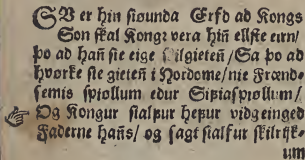 SVer er hin siounda Erfd ad Kongs
Son skal Kongr vera hiñ ellste eirn/
þo ad hañ sie eige gieteñ/Sa þo ad
hvorke sie gieteñ i Hordome/nie Frænd
semis spiollum edur Sifiaspiollum/
Og Kongur sialfur hefur vidgeinged
Faderne hañs/ og sagt sialfur skilrijke
um